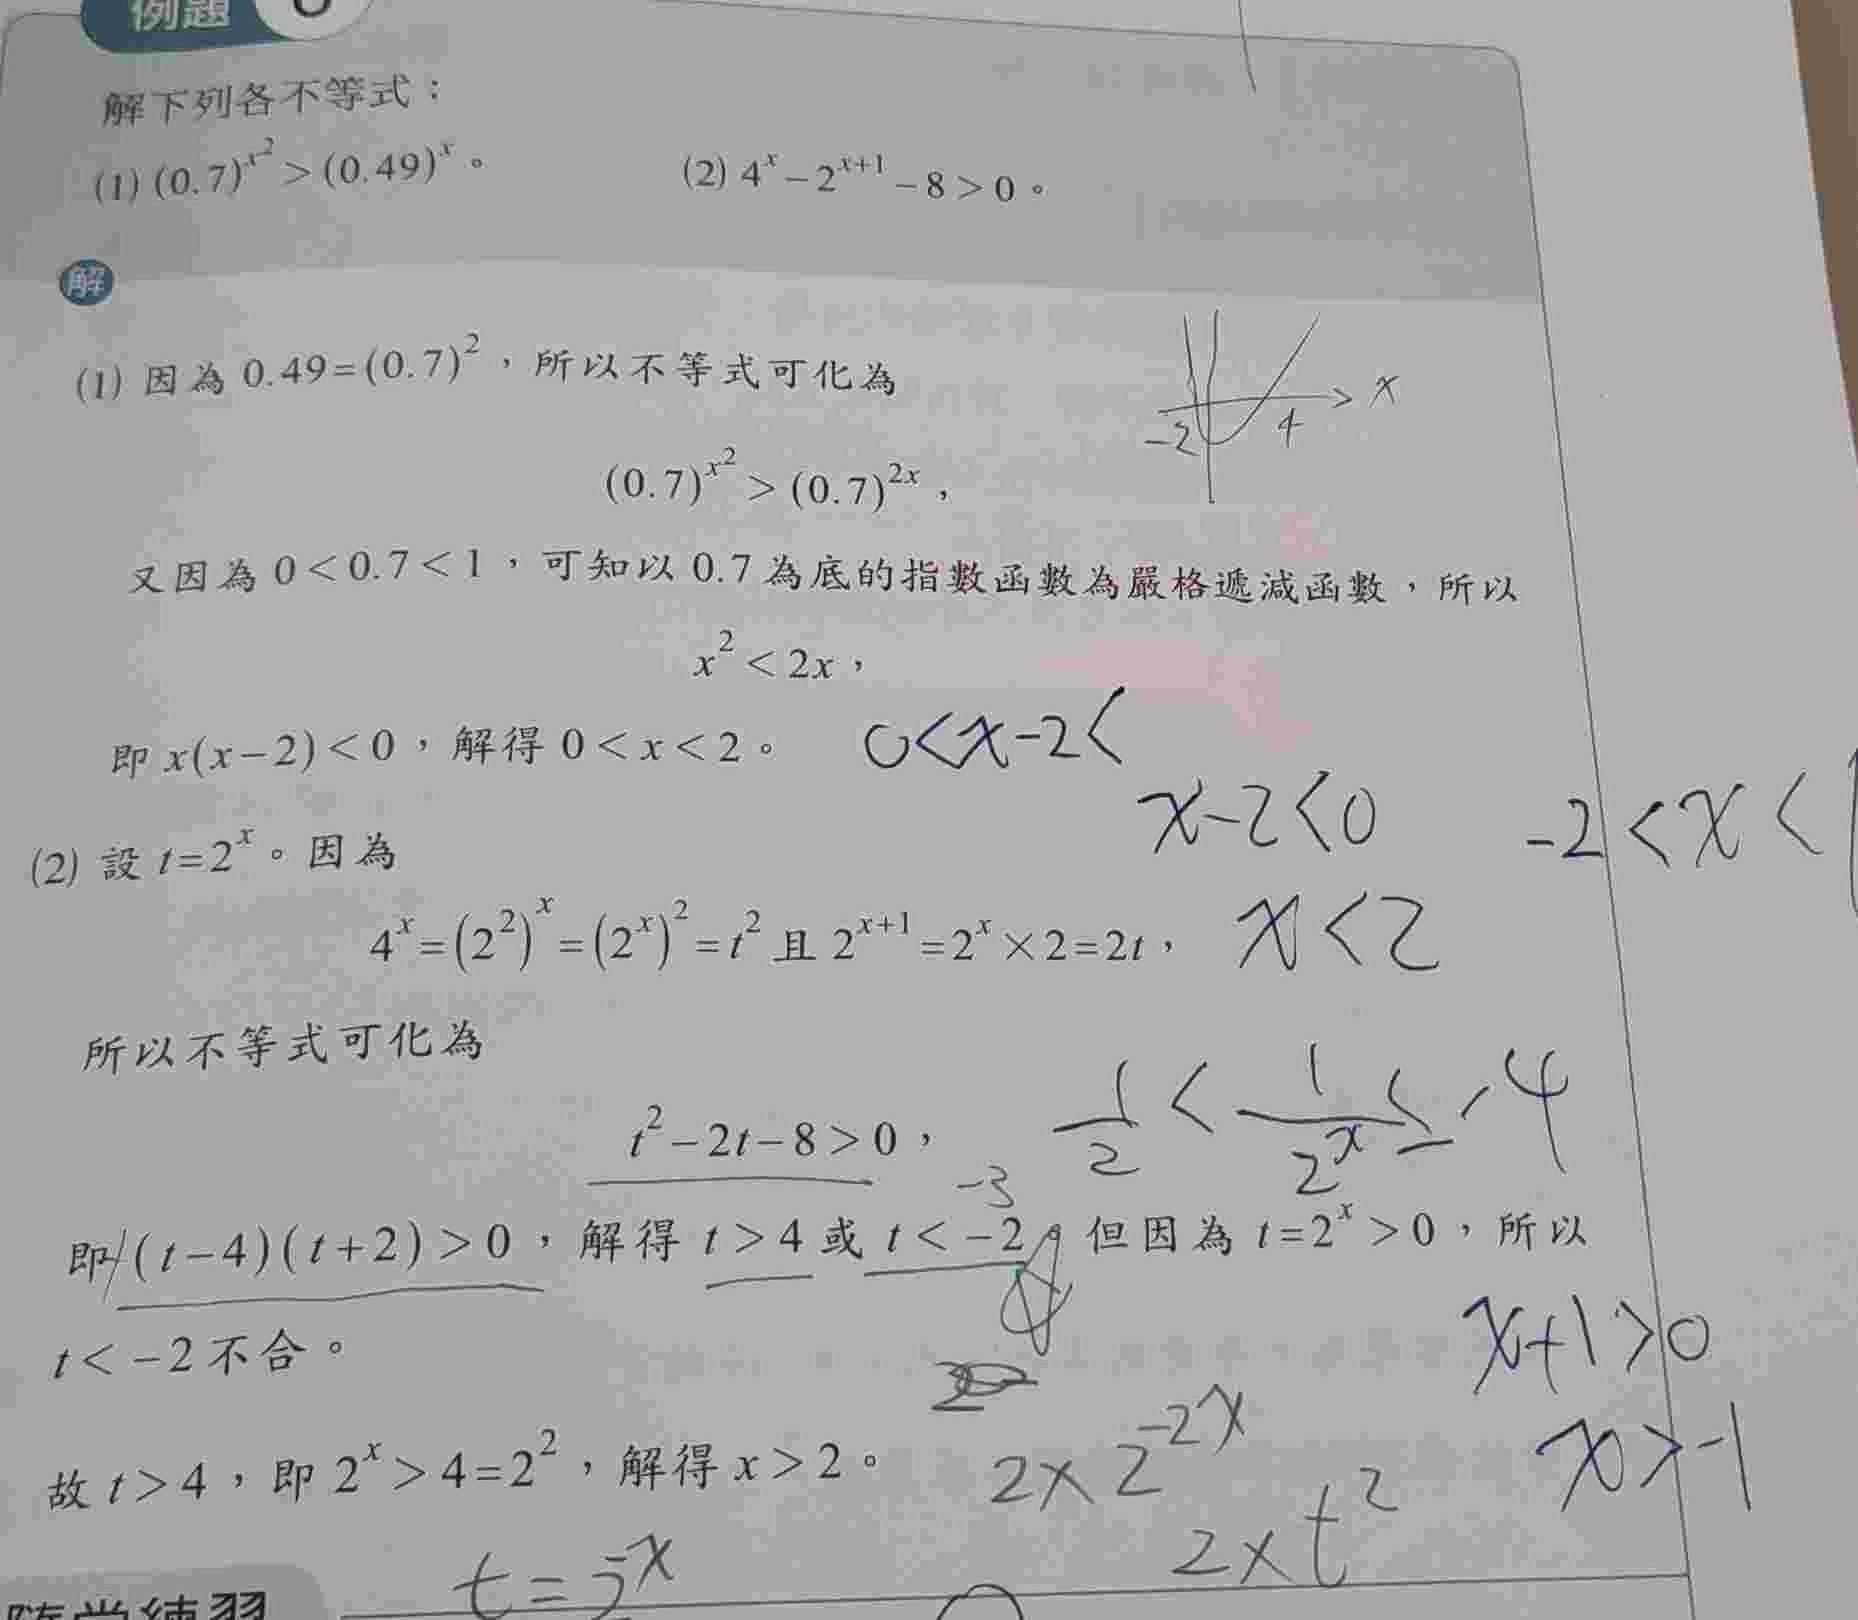 例題
解下列各不等式：
(1) (0.7)^{x^2} > (0.49)^x。 (2) 4^x − 2^{x+1} − 8 > 0。
解
(1) 因為 0.49 = (0.7)^2，所以不等式可化為
-2 4 > x
(0.7)^{x^2} > (0.7)^{2x}，
又因為 0 < 0.7 < 1，可知以 0.7 為底的指數函數為嚴格遞減函數，所以
x^2 < 2x，
即 x(x−2) < 0，解得 0 < x < 2。 0<x-2<
x-2<0 -2<x<
(2) 設 t = 2^x。因為
4^x = (2^2)^x = (2^x)^2 = t^2 且 2^{x+1} = 2^x × 2 = 2t， x<2
所以不等式可化為
t^2 − 2t − 8 > 0， 1/2 < 1/2^x ≤ 4
-3
即 (t−4)(t+2) > 0，解得 t > 4 或 t < −2。但因為 t = 2^x > 0，所以
t < −2 不合。 x+1>0
故 t > 4，即 2^x > 4 = 2^2，解得 x > 2。 2x2^{-2x} x>-1
t=5^x 2xt^2
隨堂練習